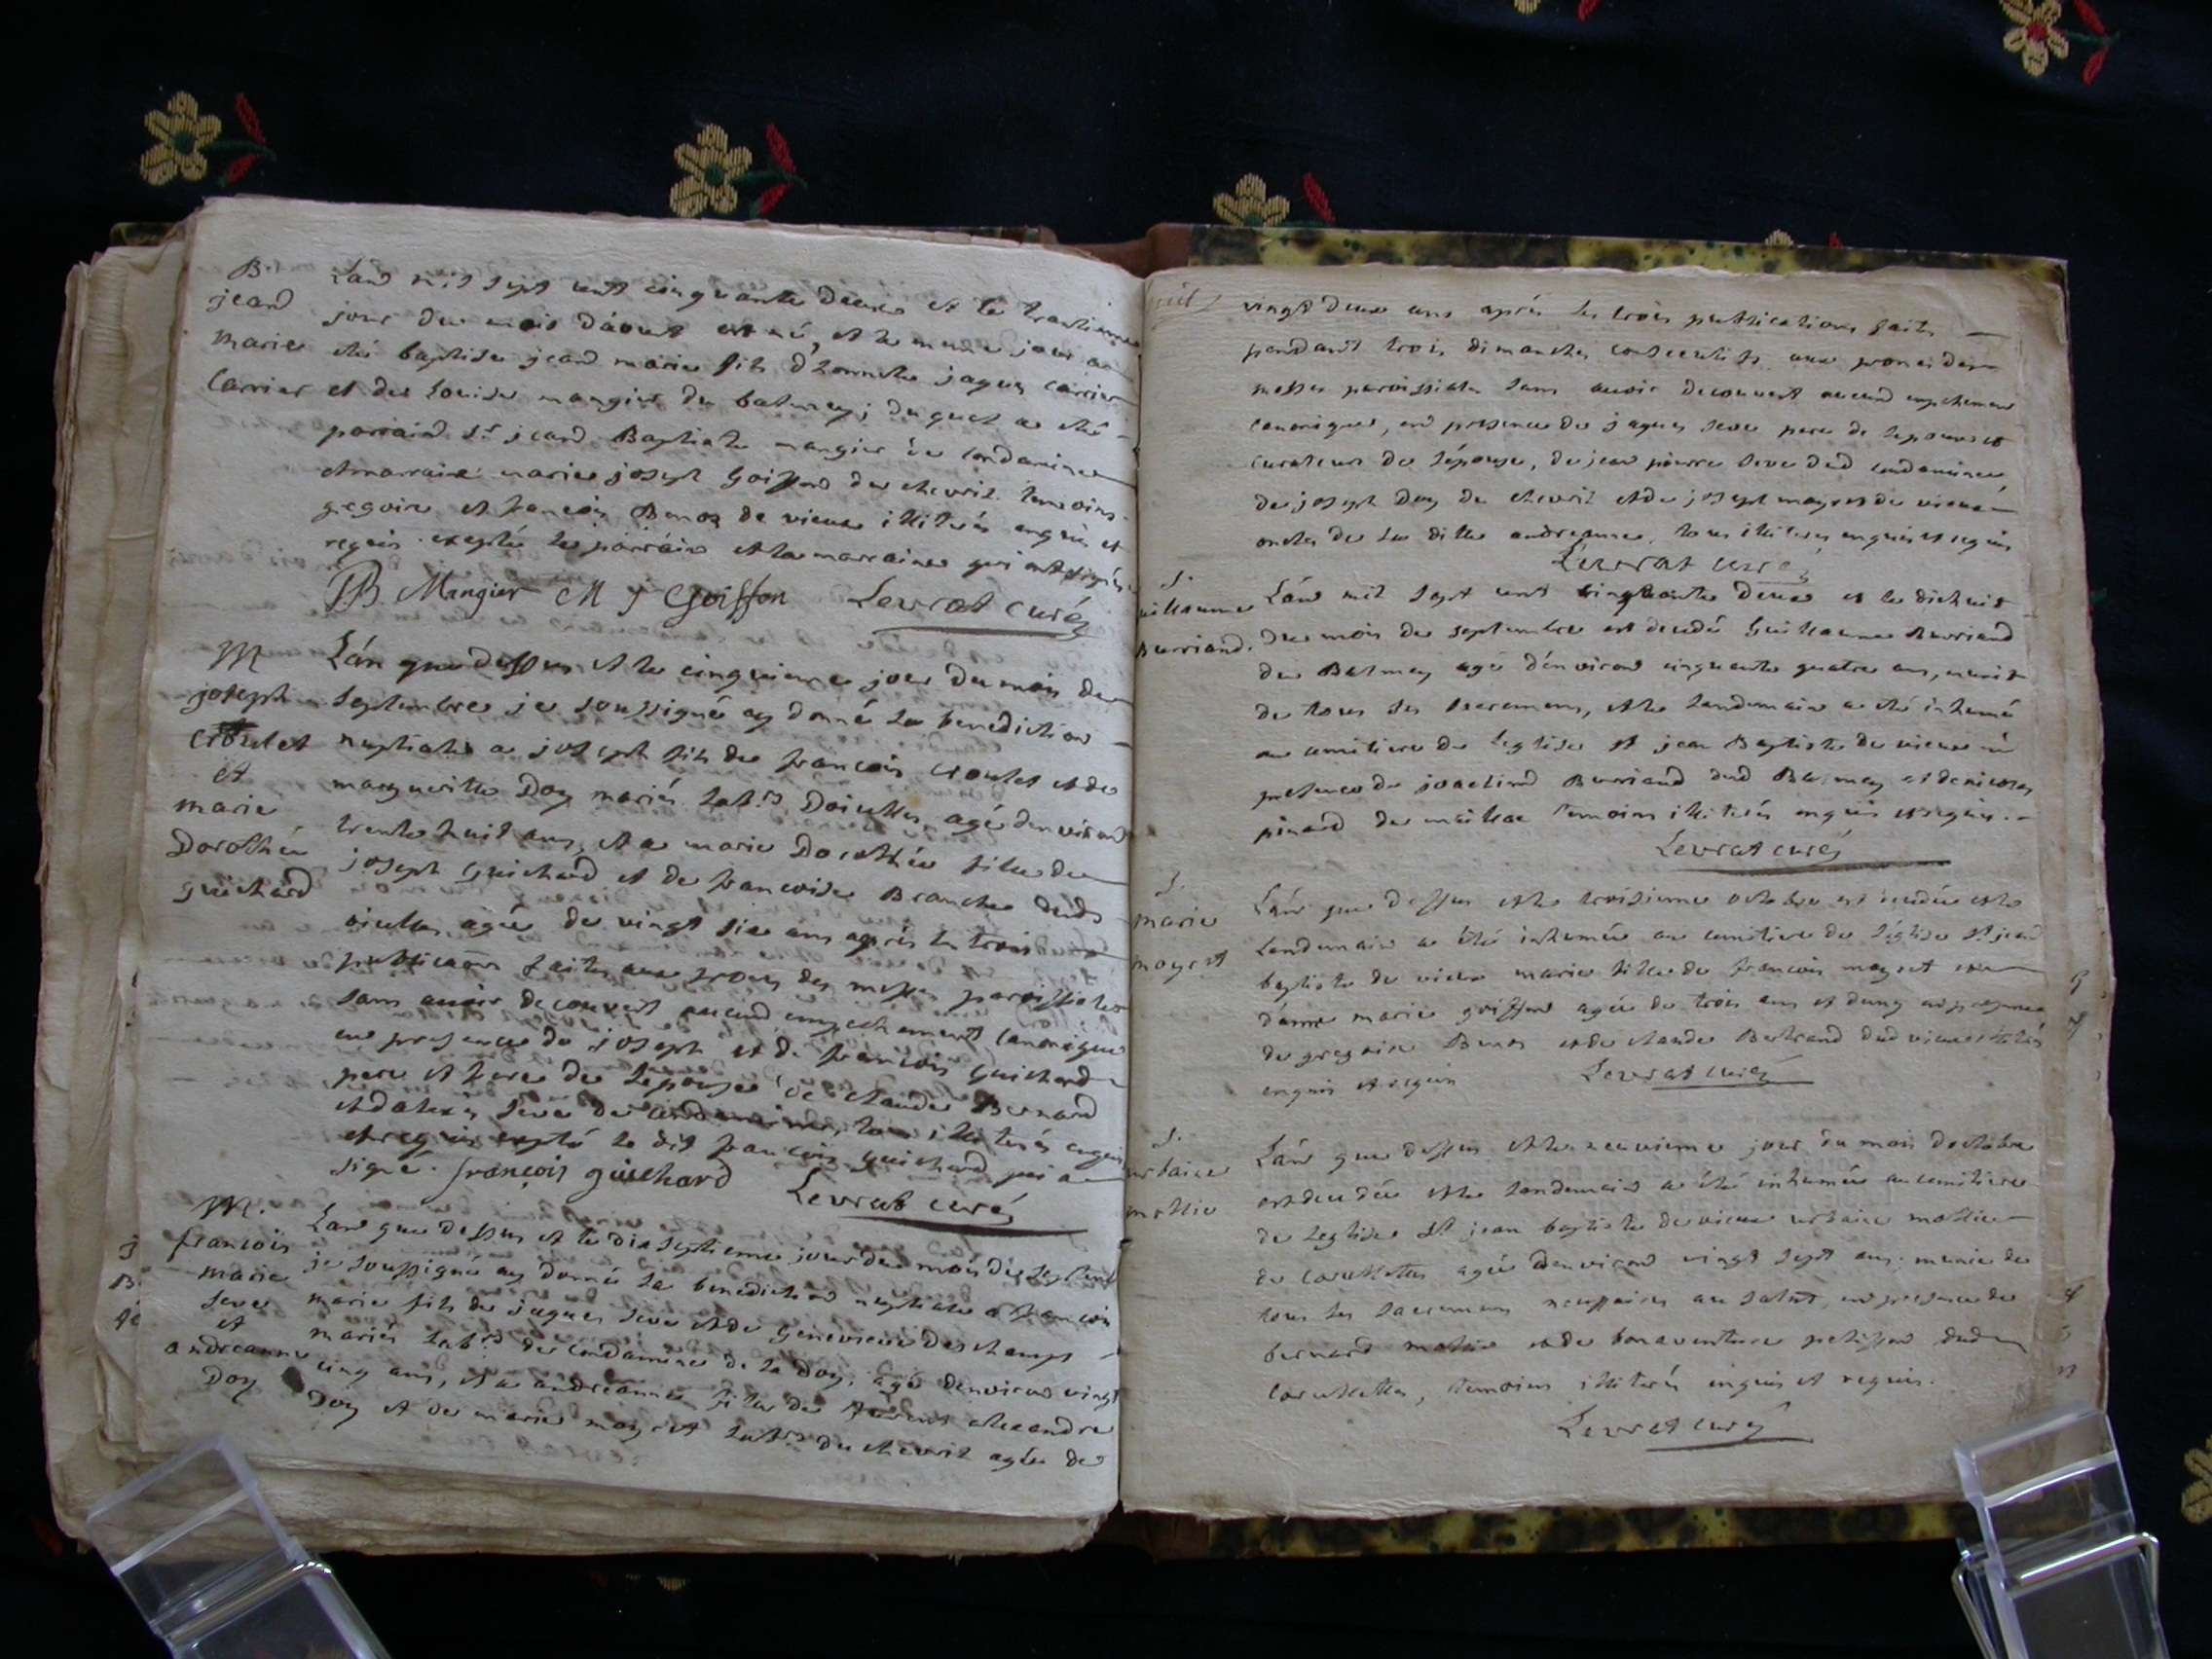 B.
jean
marie
Carrier
L'an mil sept cent cinquante deux et le trentieme
jour du mois d'aoust est né, et le meme jour a
été baptisé jean marie fils d'honnete jaques Carrier
et de Louise mangier du balmey; duquel a été
parrain Sr jean Baptiste mangier de Condamine
et marraine marie joseph Goiffon de chevril. temoins
gregoire et francois Benoz de vieux illiterés enquis et
requis excepté le parrain et la marraine qui ont signés.
JB. Mangier M J Goiffon Levrat curé
M
joseph
Croulet
et
marie
Dorothée
guichard
L'an que dessus et le cinquieme jour du mois de
septembre je soussigné ay donné la benediction
nuptiale a joseph fils de francois Croulet et de
marguerite Doy mariés habts Doicullles agé denviron
trente huit ans, et a marie Dorothée fille de
joseph Guichard et de francoise Branche dud
agée de vingt six ans après les trois
publicaons faites aux prones des messes paroissiales
sans avoir decouvert aucund empechement canonique
en presence de joseph et de francois Guichard
pere et frere de lepouse de claude Bernard
et d'alexis Seve de Condamine, tous illiterés enquis
et requis excepté le dit francois Guichard qui a
signé. françois guichard Levrat curé
M.
francois
marie
Seve
et
andreanne
Doy
L'an que dessus et le dix septieme jour du mois de septembre
je soussigné ay donné la benediction nuptiale a francois
marie fils de jaques Seve et de Genevieve Deschamps
mariés habts de Condamine de la Doy, agé denviron vingt
cinq ans, et a andreanne fille de alexandre
Doy et de marie mayret habts de chevril agée de
vingt deux ans après les trois publications faites
pendant trois dimanches consecutifs aux prones des
messes paroissiales sans avoir decouvert aucund empechement
canonique, en presence de jaques Seve pere de lepoux et
curateur de l'épouse, de jean pierre Seve dud Condamine,
de joseph Doy de chevril et de joseph mayret de vieux
oncles de la ditte andreanne, tous illiteres enquis et requis
Levrat curé
S.
uillaume
Burriand.
L'an mil sept cent cinquante Deux et le dixhuit
du mois de septembre est decedé Guillaume Burriand
du Balmey agé d'environ cinquante quatre ans, munit
de tous les sacremens, et le landemain a été inhumé
au cemitiere de leglise st jean Baptiste de vieux en
presence de joachind Burriand dud Balmey et de nicolas
pinard de temoins illiterés enquis et requis.
Levrat curé
S.
marie
mayret
L'an que dessus et le troisieme octobre est decedée et le
landemain a été inhumée au cemitiere de l'église st jean
baptiste de vieux marie fille de francois mayret et
d'anne marie goiffon agée de trois ans et demy en presence
de gregoire Benoz et de claude Bertrand dud vieux illiterés
enquis et requis Levrat curé
S.
urbaine
mollie
L'an que dessus et le neuvieme jour du mois d'octobre
est decedée et le landemain a été inhumée au cemitiere
de leglise St jean baptiste de vieux urbaine mollie
de agée denviron vingt sept ans. munie de
tous les sacremens necessaires au salut, en presence de
bernard mollie et de bonaventure petisson dud
temoins illiterés enquis et requis.
Levrat curé